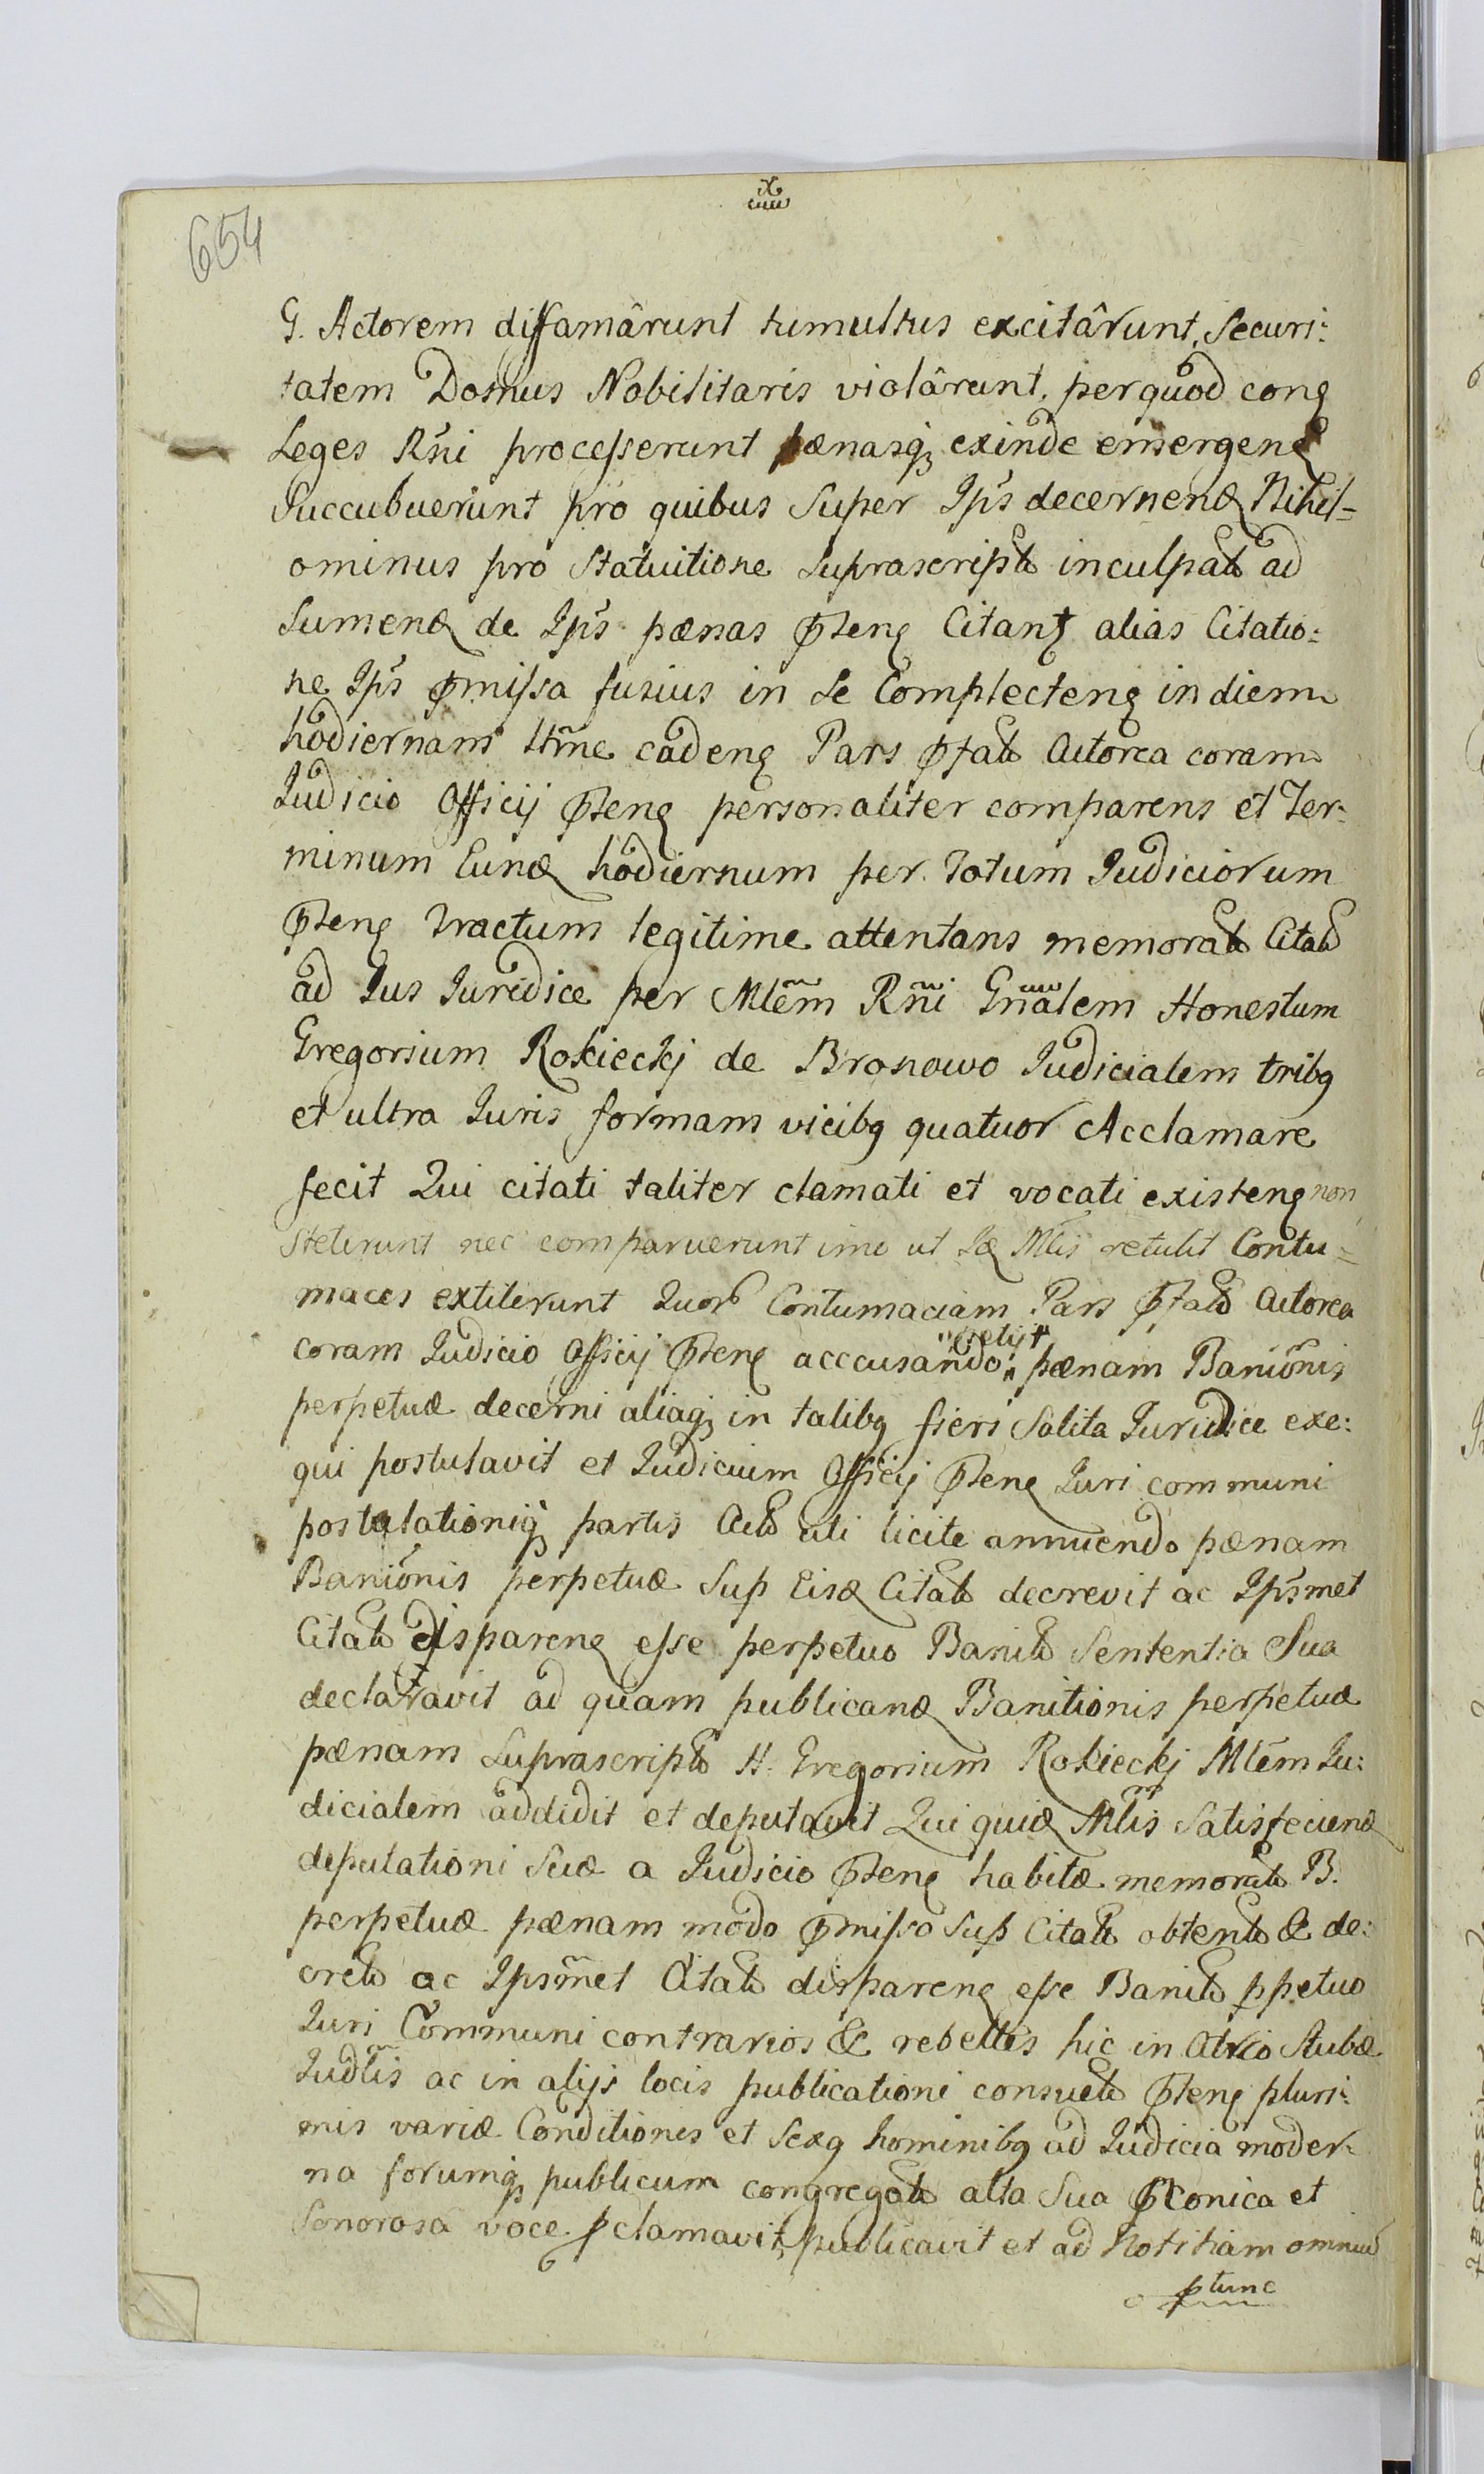 654
G. Actorem diffamârunt tumultus excitârunt, Securi:
tatem Domus Nobilitaris violârunt, per quod cong
Leges Rñi processerunt pænasq; exinde emergeng
Succubuerunt pro quibus Super Ips decernenꝺ Nihil=
ominus pro Statuitione Suprascript inculpat ad
Sumenꝺ de Ips pænas pteng Citant alias Citatio:
ne Ips pmissa fusius in Se Complecteng in diem
hodiernam ttme cadeng Pars pfat Actorea coram
Judicio Officij pteng personaliter comparens et Ter:
minum Eunꝺ hodiernum per Totum Judiciorum
pteng tractum legitime attentans memorat Citat
ad Jus Juridice per Mlem Rñi Gnalem Honestum
Gregorium Rokieckj de Bronowo Judicialem tribꝯ
et ultra Juris formam vicibꝯ quatuor Acclamare
fecit Qui citati taliter clamati et vocati existeng non
Steterunt nec comparuerunt imo ut Iꝺ Mlis retulit Contu=
maces extiterunt Quor Contumaciam Pars pfat Actorea
coram Judicio Officij pteng acccusando pænam Banionis
perpetuæ decerni aliaq; in talibꝯ fieri Solita Juridice exe:
qui postulavit et Judicium Officij pteng Juri communi
postulationiq; partis Act uti licite annuendo pænam
Banionis perpetuæ Sup Eisꝺ Citat decrevit ac Ipsmet
Citat dispareng esse perpetuo Banit Sententia Sua
declaravit ad quam publicanꝺ Banitionis perpetuæ
pænam Suprascript H. Gregorium Rokieckj Mlem Ju:
dicialem addidit et deputavit Qui quiꝺ Mlis Satisfacienꝺ
deputationi Suæ a Judicio pteng habitæ memorat B.
perpetuæ pænam modo pmisso Sup Citat obtent & de:
cret ac Ipsmet Citat dispareng esse Banit ppetuo
Juri Communi contrarios & rebelles hic in Atrio Stubæ
Judlis ac in alijs locis publicationi consuet pteng pluri:
mis variæ Conditionis et Sexꝯ hominibꝯ ad Judicia moder:
na forumq; publicum congregat alta Sua pconica et
Sonorosa voce pclamavit, publicavit et ad Notitiam omniu
ptunc